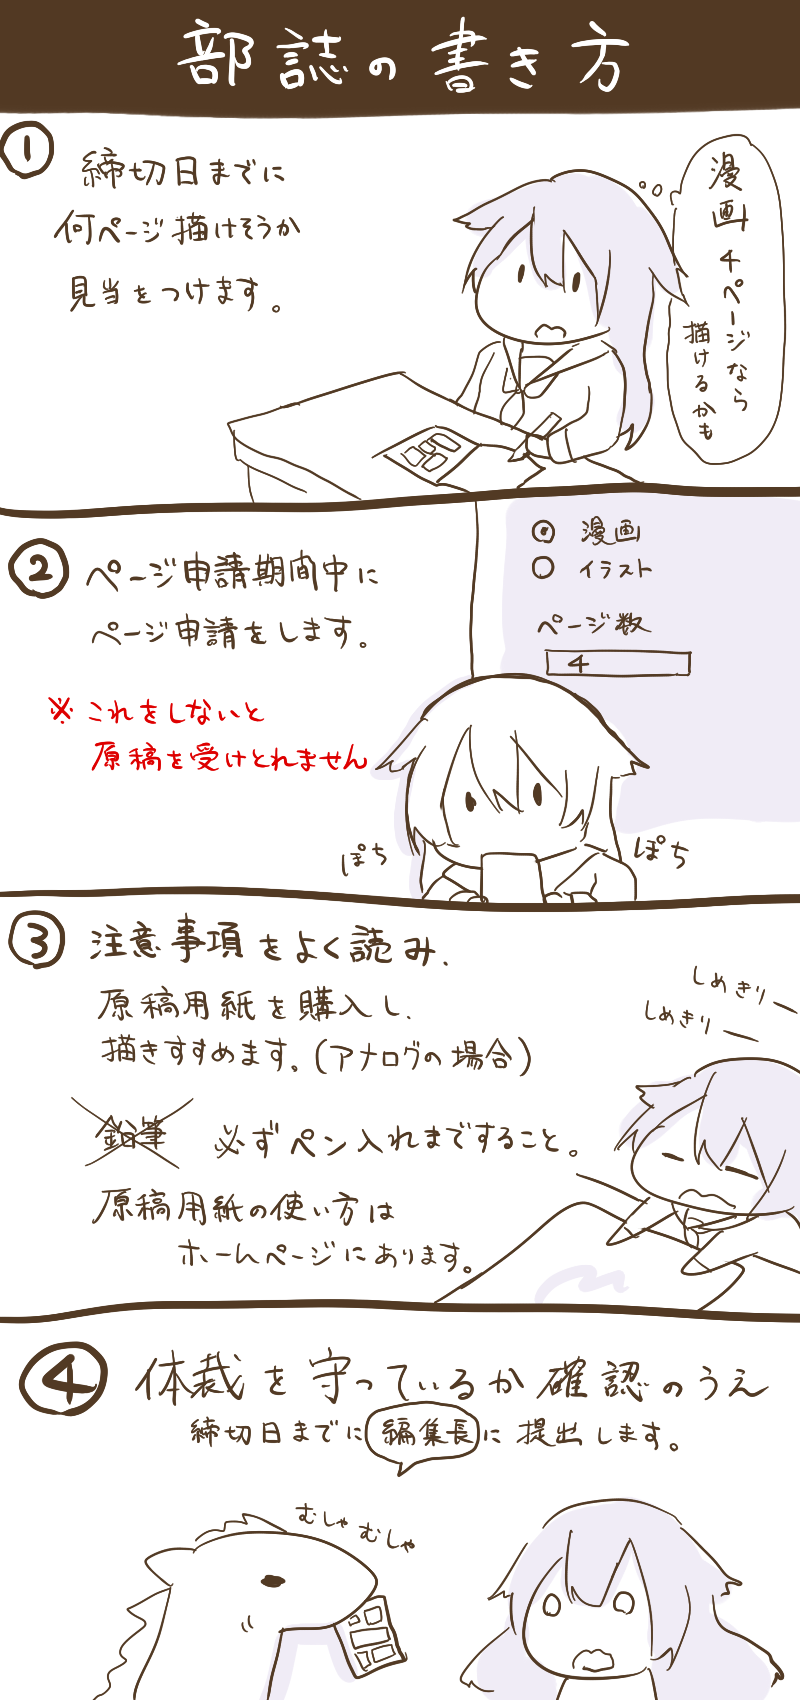 部誌の書き方
①
締切日までに
何ページ描けそうか
見当をつけます。
漫画
4ページなら
描けるかも
②
ページ申請期間中に
ページ申請をします。
※これをしないと
原稿を受けとれません
漫画
イラスト
ページ数
4
ぽち
ぽち
③
注意事項をよく読み、
原稿用紙を購入し、
描きすすめます。(アナログの場合)
鉛筆 必ずペン入れまですること。
原稿用紙の使い方は
ホームページにあります。
しめきりー
しめきりー
④
体裁を守っているか確認のうえ
締切日までに編集長に提出します。
むしゃむしゃ